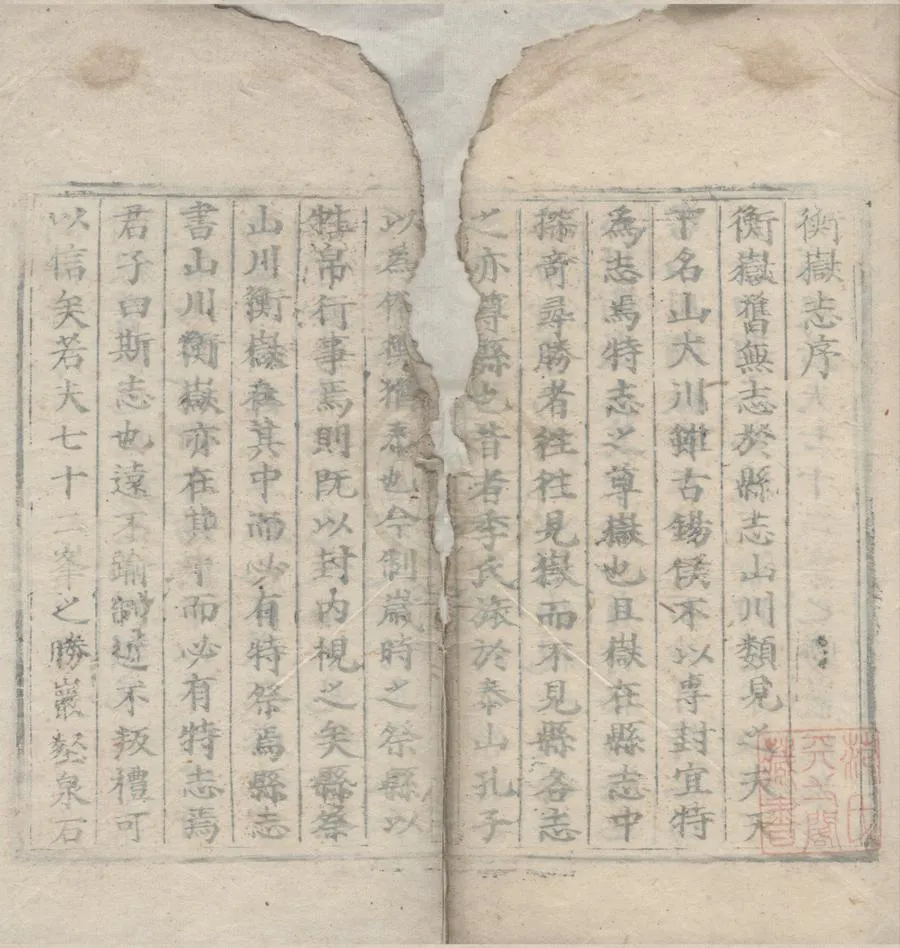 衡嶽志序
衡嶽舊無志於縣志山川類見之夫天
下名山大川雖古錫侯不以專封宜特
為志焉特志之尊嶽也且嶽在縣志中
探奇尋勝者往往見嶽而不見縣各志
之亦尊縣也昔者季氏旅於泰山孔子
以為僭也今制歲時之祭縣以
牲帛行事焉則既以封內視之矣縣祭
山川衡嶽在其中而必有特祭焉縣志
書山川衡嶽亦在其中而必有特志焉
君子曰斯志也遠不踰制近不叛禮可
以信矣若夫七十二峯之勝巖壑泉石